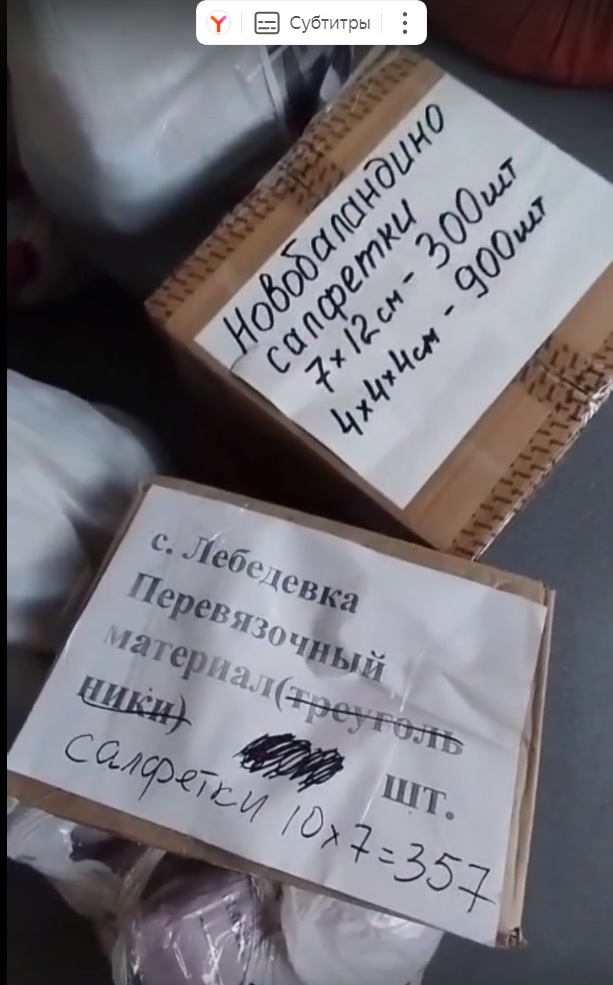 Субтитры
Новобаландино
салфетки
7х12см - 300шт
4х4х4см - 900шт
с. Лебедевка
Перевязочный
материал(треуголь
ники)
шт.
салфетки 10х7=357